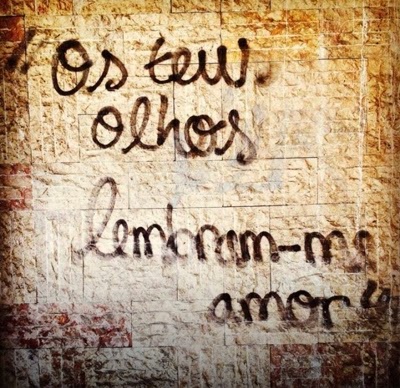 "Os teus
olhos
lembram-me
amor"